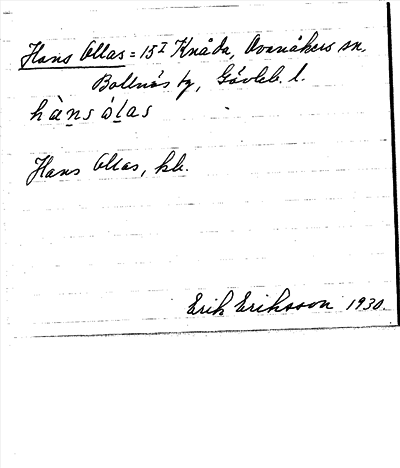 Hans Ollas = 15I Knåda, Ovanåkers sn,
Bollnäs tg, Gävleb. l.
hàns ólas
Hans Ollas, kb.
Erik Eriksson 1930.